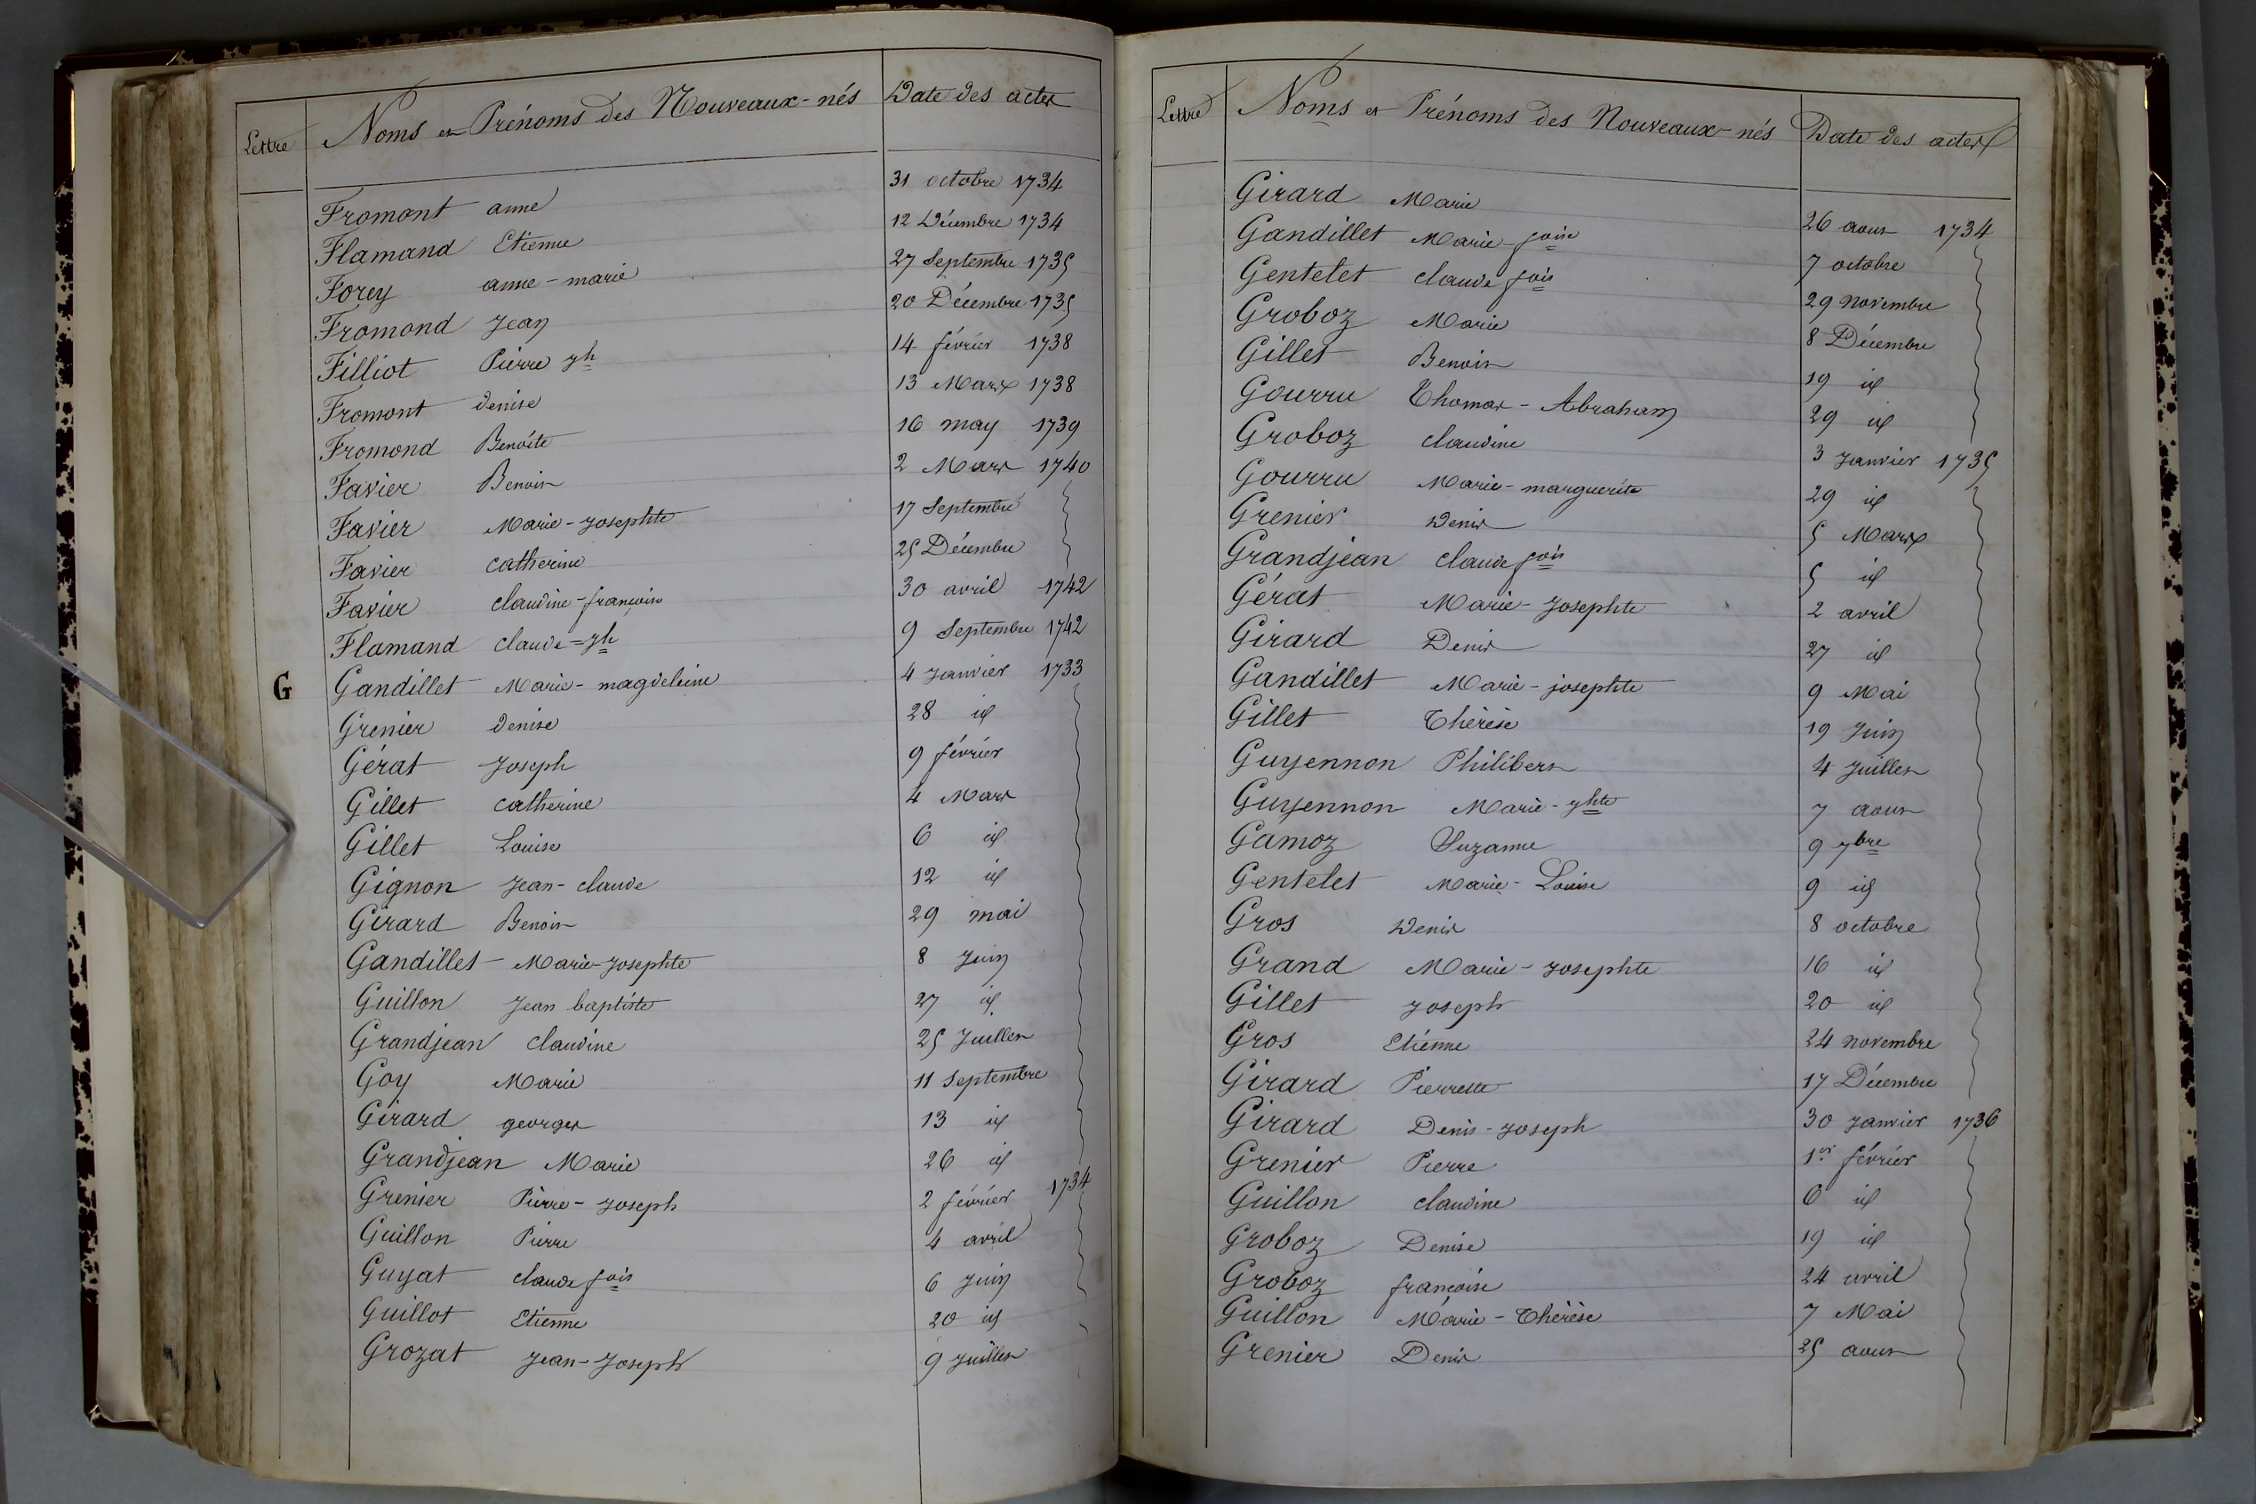 Lettre Noms et Prénoms des Nouveaux-nés Date des actes
Fromont anne 31 octobre 1734
Flamand Etienne 12 Décembre 1734
Forey anne-marie 27 Septembre 1735
Fromond Jean 20 Décembre 1735
Filliot Pierre jh 14 février 1738
Fromont denise 13 Mars 1738
Fromond Benoite 16 may 1739
Favier Benoit 2 Mars 1740
Favier Marie-Josephte 17 Septembre
Favier catherine 25 Décembre
Favier claudine-françoise 30 avril 1742
Flamand claude-jh 9 Septembre 1742
G Gandillet Marie-magdeleine 4 Janvier 1733
Grenier denise 28 id
Gérat Joseph 9 février
Gillet catherine 4 Mars
Gillet Louise 6 id
Gignon Jean-claude 12 id
Girard Benoit 29 mai
Gandillet Marie-Josephte 8 Juin
Guillon Jean baptiste 27 id
Grandjean Claudine 25 Juillet
Goy Marie 11 Septembre
Girard georges 13 id
Grandjean Marie 26 id
Grenier Pierre-Joseph 2 février 1734
Guillon Pierre 4 avril
Guyat claude fois 6 Juin
Guillot Etienne 20 id
Grozat Jean-Joseph 9 Juillet
Lettre Noms et Prénoms des Nouveaux-nés Date des actes
Girard Marie 26 aout 1734
Gandillet Marie-foise 7 octobre
Gentelet claude fois 29 novembre
Groboz Marie 8 Décembre
Gillet Benoit 19 id
Gourru Thomas-Abraham 29 id
Groboz claudine 3 Janvier 1735
Gourru Marie-marguerite 29 id
Grenier Denis 5 Mars
Grandjean claude fois 5 id
Gérat Marie-Josephte 2 avril
Girard Denis 27 id
Gandillet Marie-josephte 9 Mai
Gillet Thérèse 19 Juin
Guyennon Philibert 4 Juillet
Guyennon Marie-jhte 7 aout
Gamoz Suzanne 9 7bre
Gentelet Marie-Louise 9 id
Gros Denis 8 octobre
Grand Marie-Josephte 16 id
Gillet Joseph 20 id
Gros Etienne 24 novembre
Girard Pierrette 17 Décembre
Girard Denis-Joseph 30 Janvier 1736
Grenier Pierre 1er février
Guillon claudine 6 id
Groboz Denise 19 id
Groboz françoise 24 avril
Guillon Marie-Thérèse 7 Mai
Grenier Denis 25 aout